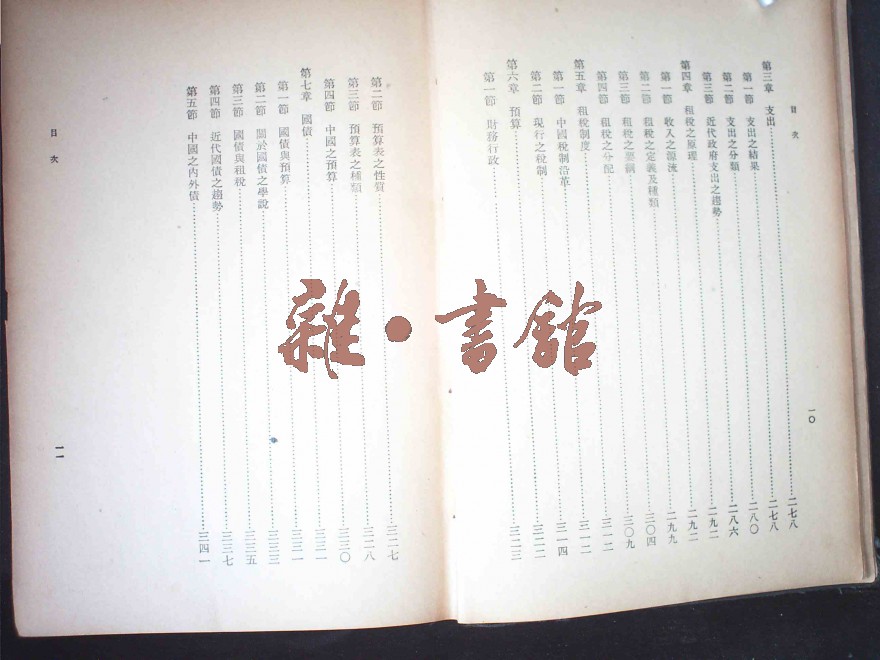 目次
第三章 支出……二七八
第一節 支出之結果……二七八
第二節 支出之分類……二八〇
第三節 近代政府支出之趨勢……二八六
第四章 租稅之原理……二九二
第一節 收入之源流……二九二
第二節 租稅之定義及種類……二九九
第三節 租稅之要綱……三〇四
第四節 租稅之分配……三〇九
第五章 租稅制度……三一二
第一節 中國稅制沿革……三一二
第二節 現行之稅制……三一四
第六章 預算……三二二
第一節 財務行政……三二三
一〇
第二節 預算表之性質……三二七
第三節 預算表之種類……三二八
第四節 中國之預算……三三〇
第七章 國債……三三一
第一節 國債與預算……三三一
第二節 關於國債之學說……三三三
第三節 國債與租稅……三三五
第四節 近代國債之趨勢……三三七
第五節 中國之內外債……三四一
目次
一一
雜·書館